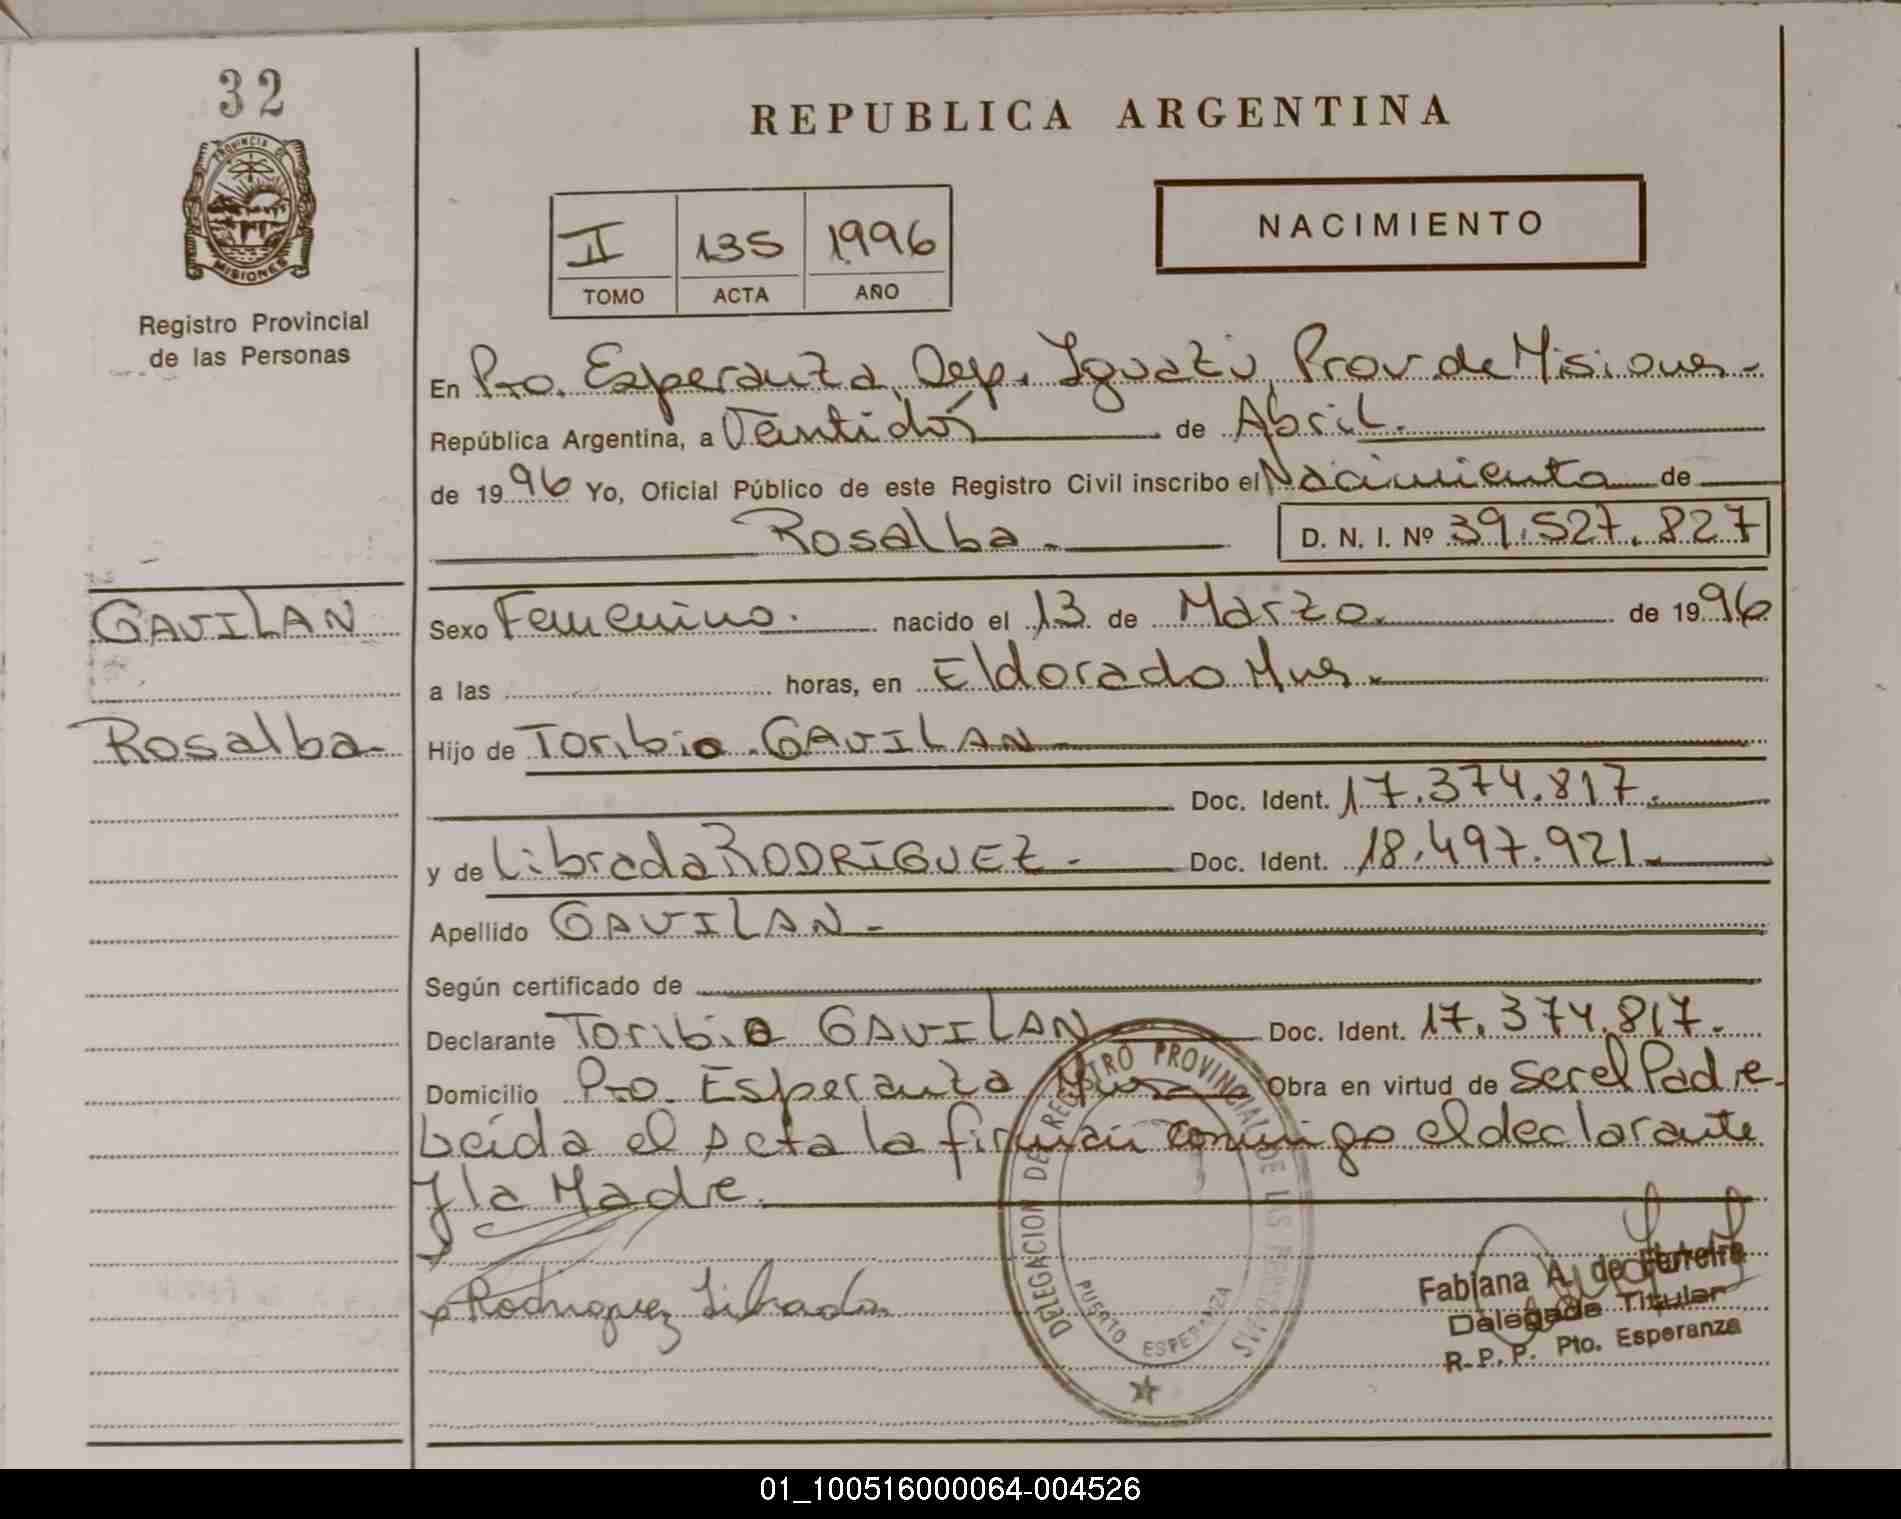 32
PROVINCIA DE
MISIONES
Registro Provincial
de las Personas
REPUBLICA ARGENTINA
NACIMIENTO
II 135 1996
TOMO ACTA AÑO
En Pto. Esperanza, Dep. Iguazú, Prov de Misiones.
República Argentina, a Veintidós de Abril.
de 1996 Yo, Oficial Público de este Registro Civil inscribo el Nacimiento de
Rosalba. D. N. I. Nº 39.527.827
GAVILAN
Rosalba
Sexo Femenino. nacido el 13 de Marzo. de 1996
a las horas, en Eldorado Mnes.
Hijo de Toribio GAVILAN
Doc. Ident. 17.374.817.
y de Librada RODRIGUEZ. Doc. Ident. 18.497.921.
Apellido GAVILAN
Según certificado de
Declarante Toribio GAVILAN Doc. Ident. 17.374.817.
Domicilio Pto. Esperanza Mnes Obra en virtud de ser el Padre.
Leída el Acta la firman conmigo el declarante
y la Madre.
x
x Rodriguez Librada
DELEGACION DE REGISTRO PROVINCIAL DE LAS PERSONAS
PUERTO ESPERANZA
Fabiana A. de Ferreira
Delegada Titular
R.P.P. Pto. Esperanza
01_100516000064-004526